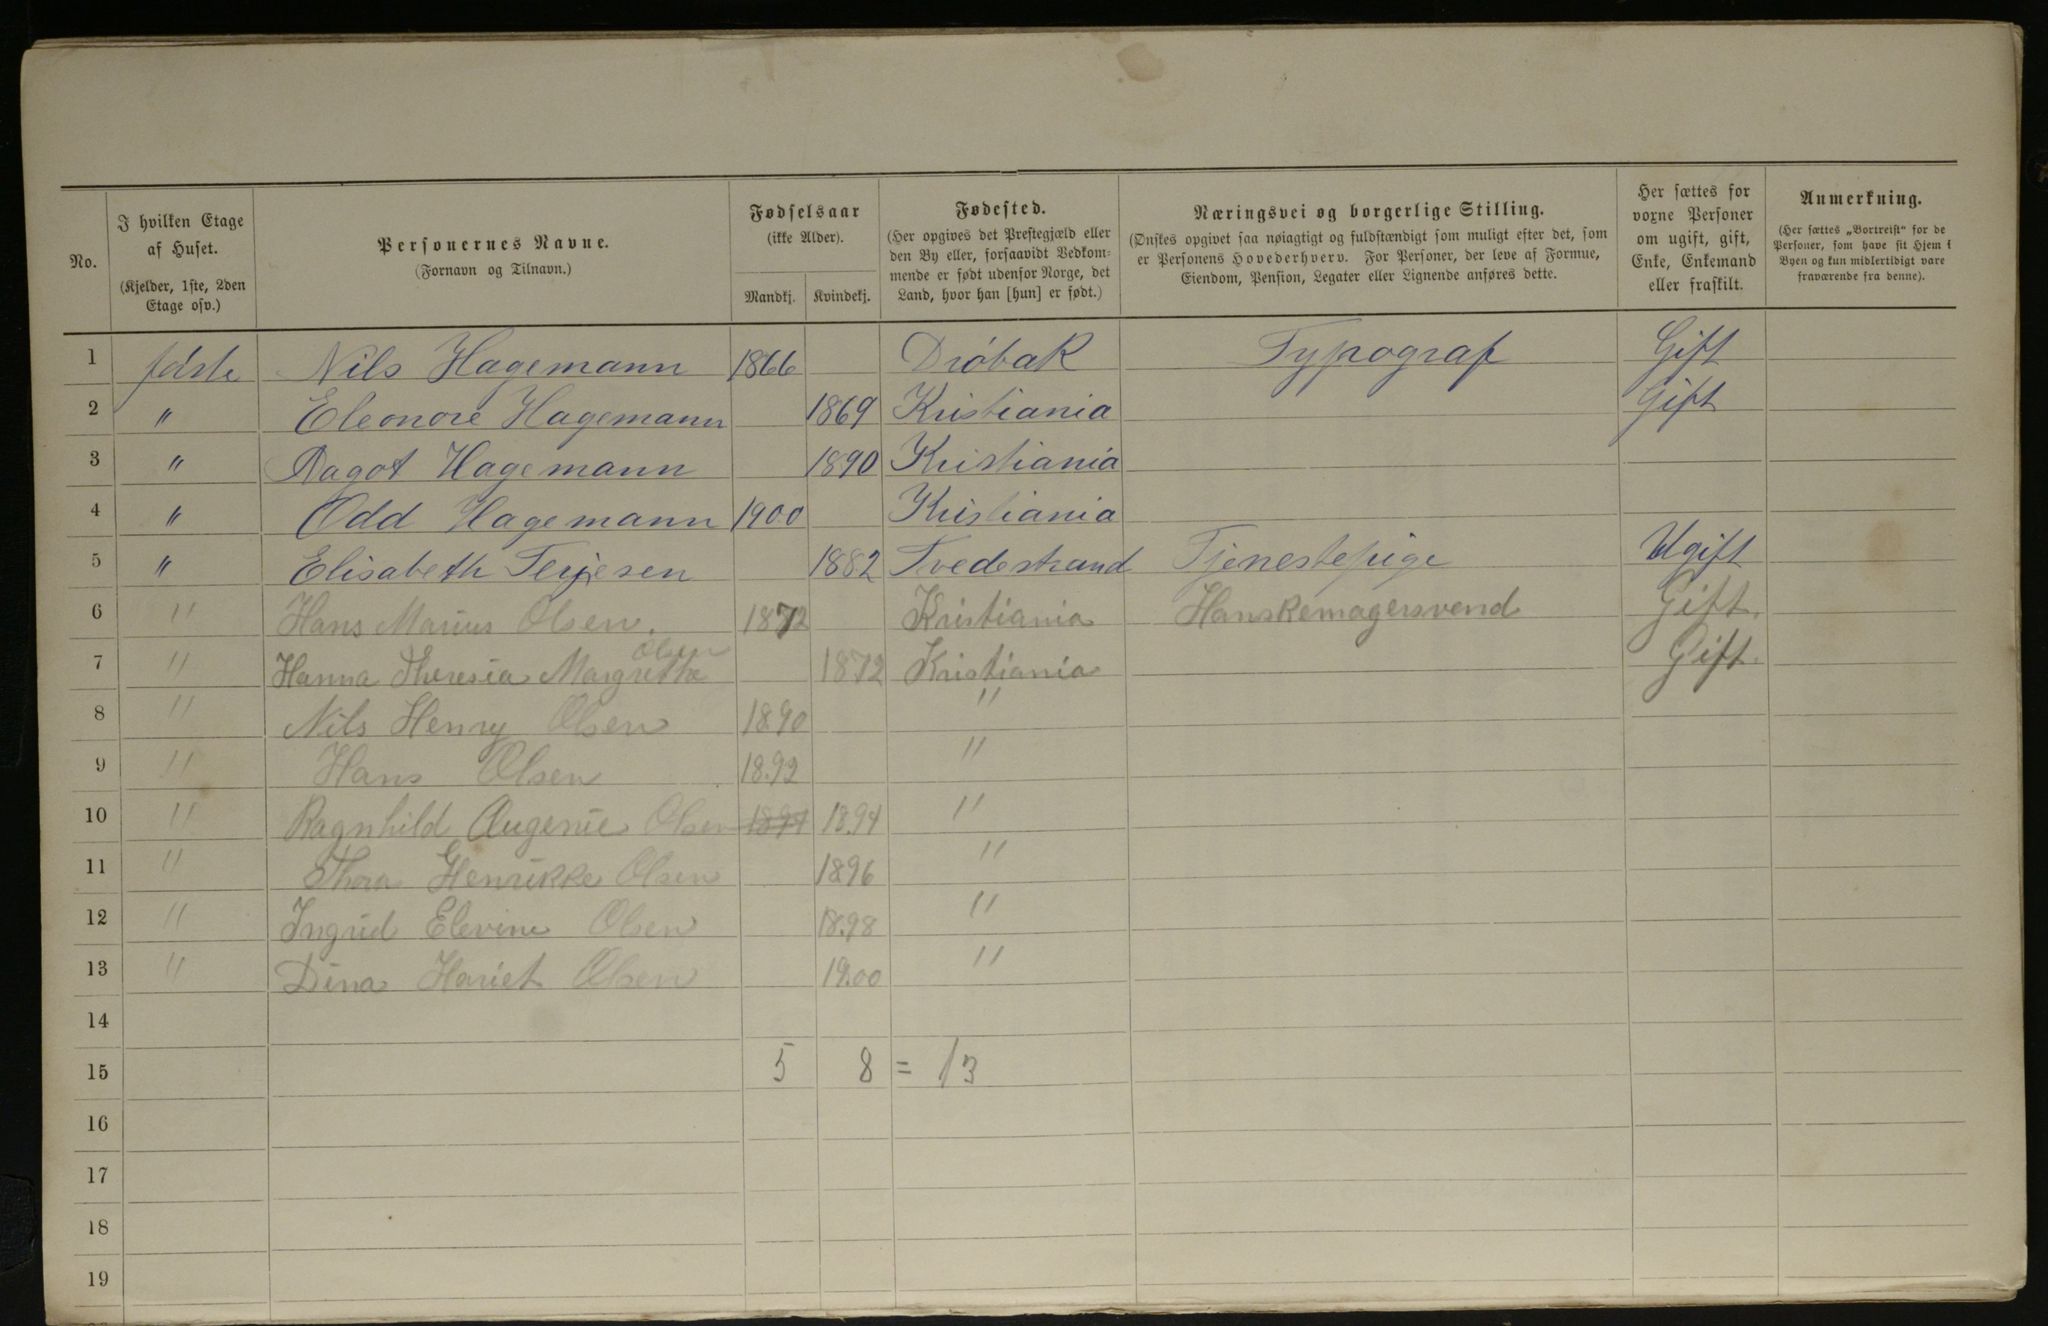 No.
I hvilken Etage
af Huset.
(Kjelder, 1ste, 2den
Etage osv.)
Personernes Navne.
(Fornavn og Tilnavn.)
Fødselsaar
(ikke Alder).
Mandkj. Kvindekj.
Fødested.
(Her opgives det Prestegjæld eller
den By eller, forsaavidt Vedkom-
mende er født udenfor Norge, det
Land, hvor han [hun] er født.)
Næringsvei og borgerlige Stilling.
(Ønskes opgivet saa nøiagtigt og fuldstændigt som muligt efter det, som
er Personens Hovederhverv. For Personer, der leve af Formue,
Eiendom, Pension, Legater eller Lignende anføres dette.
Her sættes for
voxne Personer
om ugift, gift,
Enke, Enkemand
eller fraskilt.
Anmerkning.
(Her sættes „Bortreist“ for de
Personer, som have sit Hjem i
Byen og kun midlertidigt vare
fraværende fra denne).
1 første Nils Hagemann 1866 Dröbak Typograf Gift
2 " Eleonore Hagemann 1869 Kristiania Gift
3 " Dagot Hagemann 1890 Kristiania
4 " Odd Hagemann 1900 Kristiania
5 " Elisabeth Terjesen 1882 Tvedestrand Tjenestepige Ugift
6 " Hans Marius Olsen. 1872 Kristiania Hanskemagersvend Gift.
7 " Hanna Theresia Margrethe Olsen 1872 Kristiania Gift.
8 " Nils Henry Olsen 1890 "
9 " Hans Olsen 1892 "
10 " Ragnhild Augenie Olsen 1894 1894 "
11 " Thora Henrikke Olsen 1896 "
12 " Ingrid Elevine Olsen 1898 "
13 " Dina Hariet Olsen 1900 "
14
15 5 8 = 13
16
17
18
19